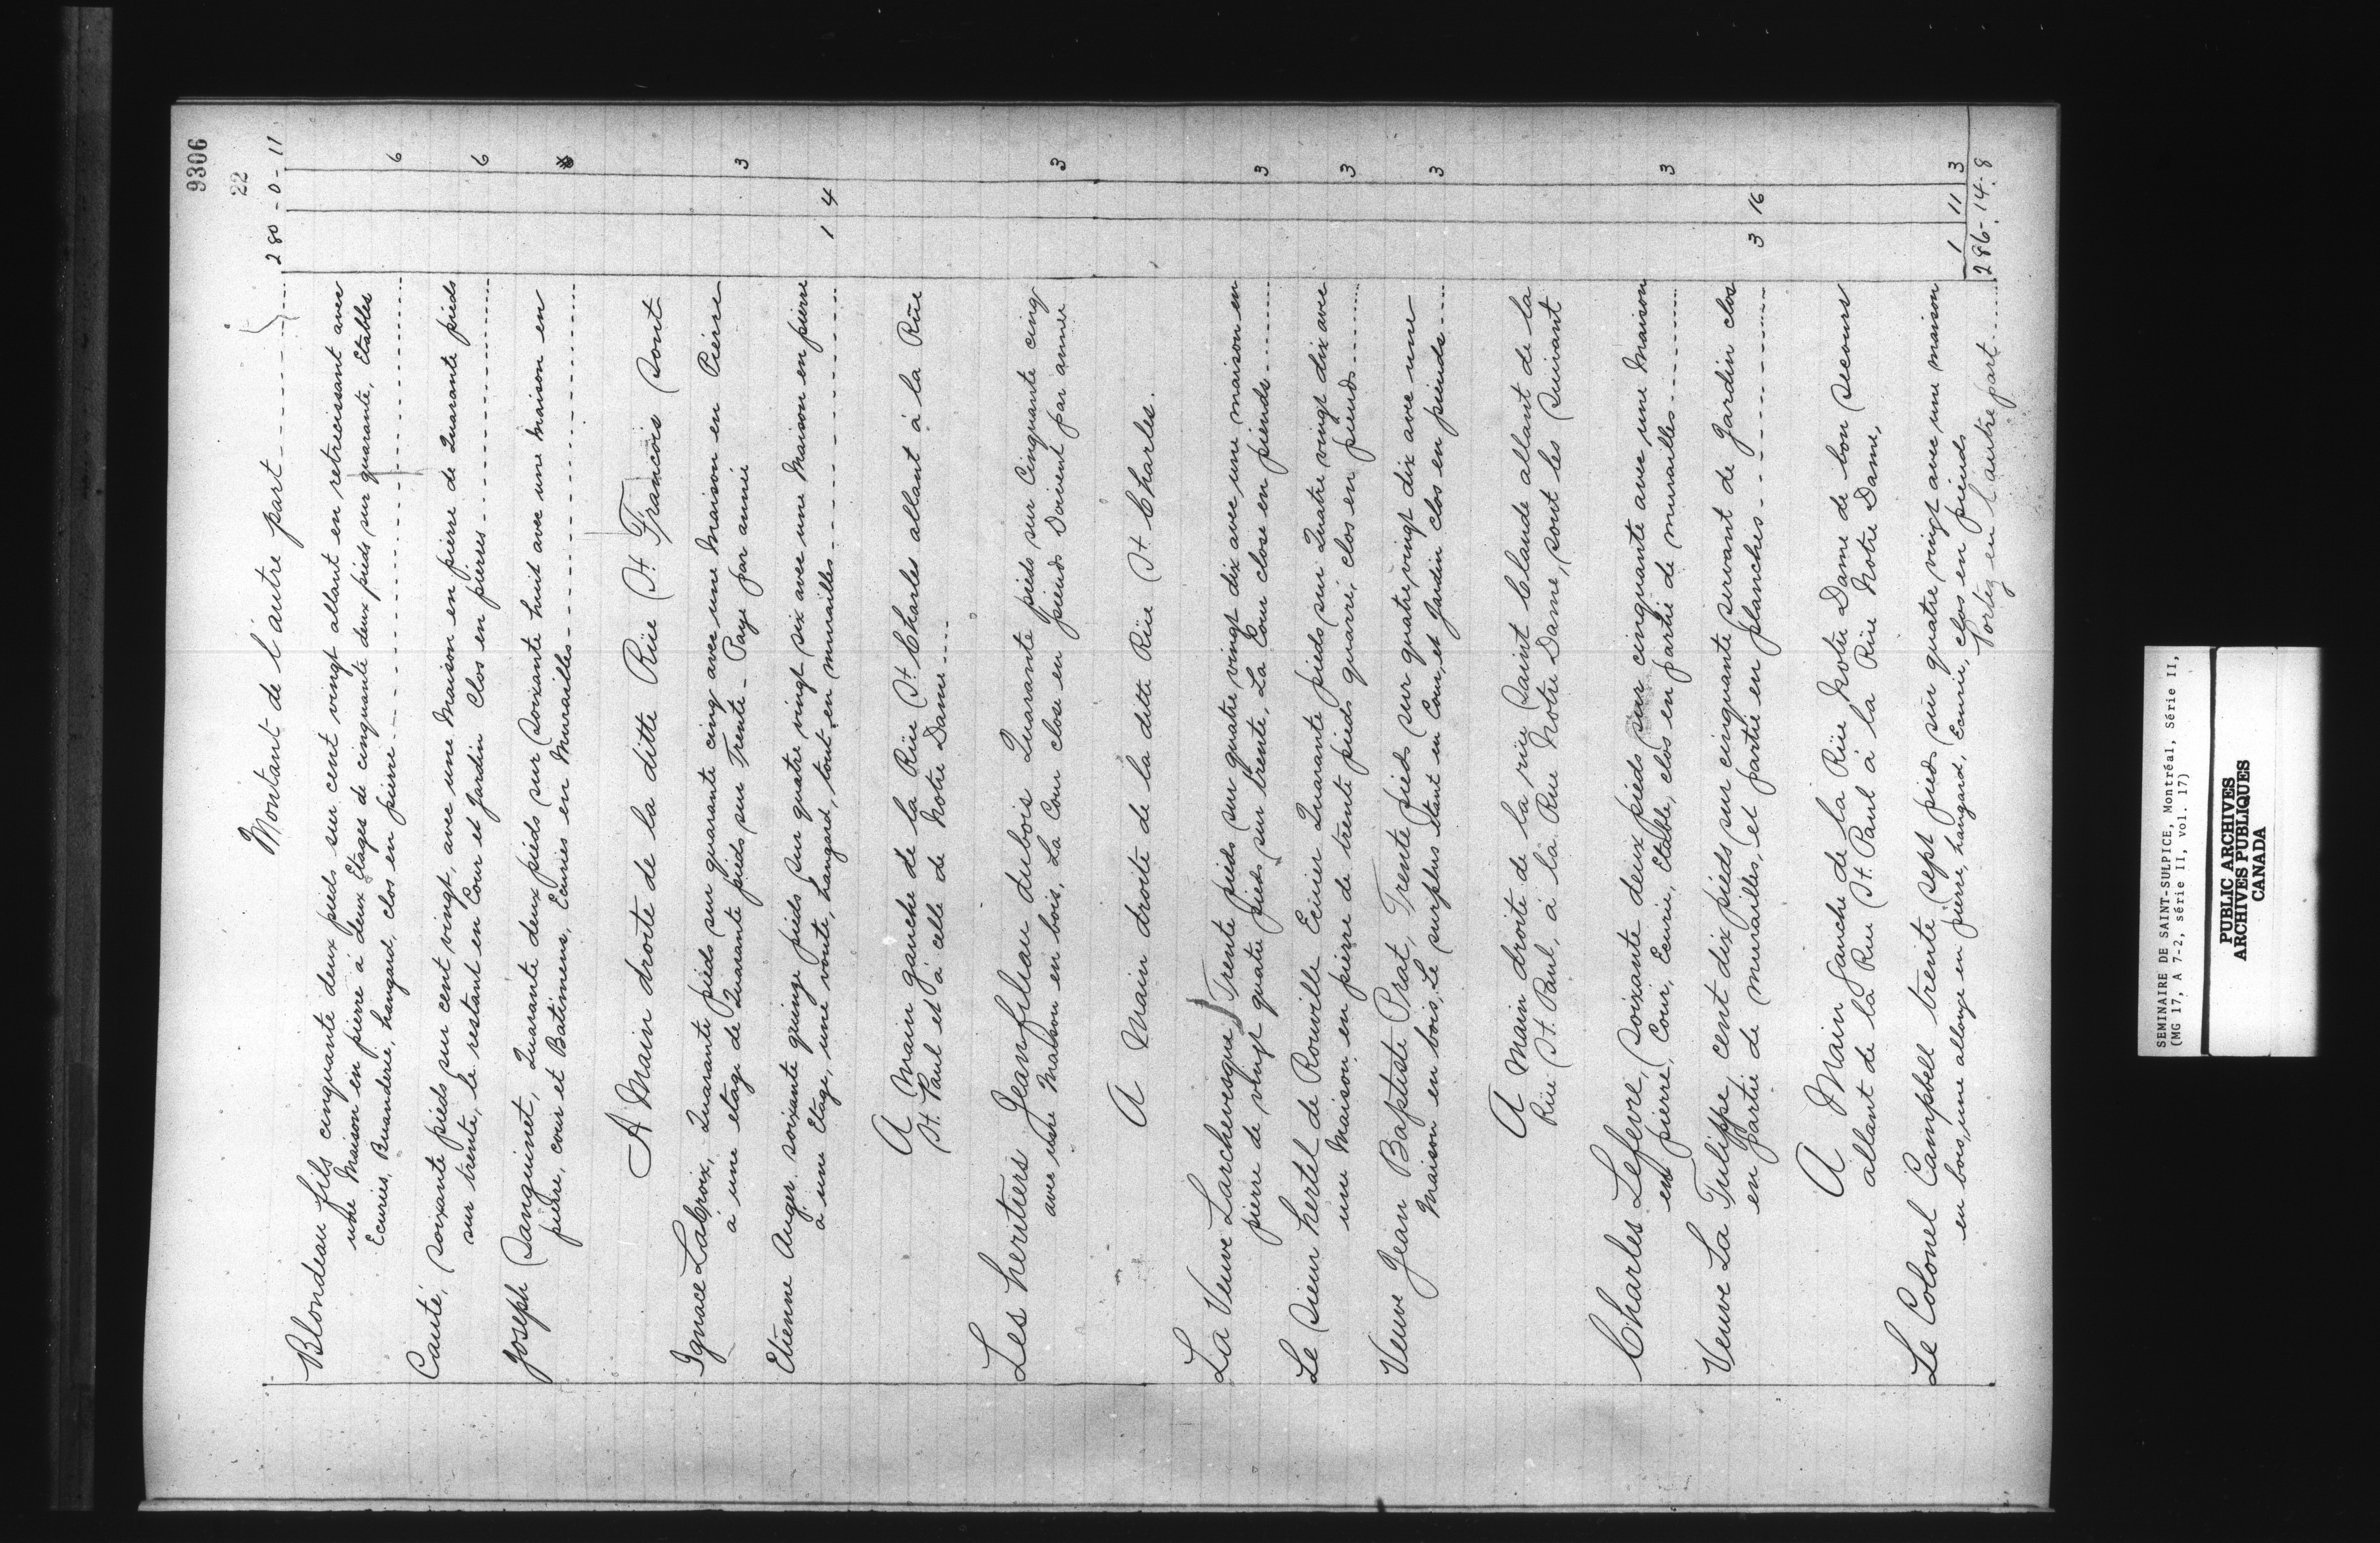 9306
22
Montant de l'autre part 280 - 0 - 11
Blondeau fils cinquante deux pieds sur cent vingt allant en retrecissant avec
une Maison en pierre à deux Etages de cinquante deux pieds sur quarante, Etables
Ecuries, Buanderie, hangard, clos en pierre 6
Cauté, soixante pieds sur cent vingt, avec une Maison en pierre de Quarante pieds
sur trente, le restant en Cour et Jardin Clos en pierres 6
Joseph Sanguinet, Quarante deux pieds sur Soixante huit avec une Maison en
pierre, cour et Batimens, Ecuries en Murailles
A Main droite de la ditte Rüe St. Francois Sont
Ignace LaCroix, Quarante pieds sur quarante cinq avec une Maison en Pierre
à une etage de Quarante pieds sur Trente - Paye par année 3
Etienne Auger soixante quinze pieds sur quatre vingt six avec une Maison en pierre
à une Etage, une voute, hangard, tout en murailles 1 4
A Main gauche de la Rüe St. Charles allant à la Rüe
St. Paul et à celle de Notre Dame
Les hertiers Jeanfileau dubois Quarante pieds sur Cinquante cinq
avec une Maison en bois, La Cour close en pieuds Doivent par année 3
A Main droite de la ditte Rüe St Charles.
La Veuve Larchevesque Trente pieds sur quatre vingt dix avec une maison en
pierre de vingt quatre pieds sur trente, La Cour close en pieuds 3
Le Sieur hertel de Rouville Ecuier Quarante pieds sur Quatre vingt dix avec
une Maison en pierre de trente pieds quarré, clos en pieuds 3
Veuve Jean Baptiste Prat, Trente pieds sur quatre vingt dix avec une
Maison en bois, Le surplus étant en Cour, et Jardin clos en pieuds 3
A Main droite de la rüe Saint Claude allant de la
Rüe St. Paul, à la Rue Notre Dame, sont les Suivant
Charles Lefevre, Soixante deux pieds sur cinquante avec une Maison
en pierre, Cour, Ecurie, Etable, clos en partie de murailles 3
Veuve La Tulippe, cent dix pieds sur cinquante servant de Jardin clos
en partie de murailles, et partie en planches 3 16
A Main gauche de la Rüe Notre Dame de bon Secours
allant de la Rue St. Paul à la Rüe Notre Dame,
Le Colonel Campbell trente sept pieds sur quatre vingt avec une maison
en bois, une allonge en pierre, hangard, Ecurie, clos en pieuds 1 11 3
Portez en l'autre part 286 - 14 - 8
SEMINAIRE DE SAINT-SULPICE, Montréal, Série II,
(MG 17, A 7-2, série II, vol. 17)
PUBLIC ARCHIVES
ARCHIVES PUBLIQUES
CANADA